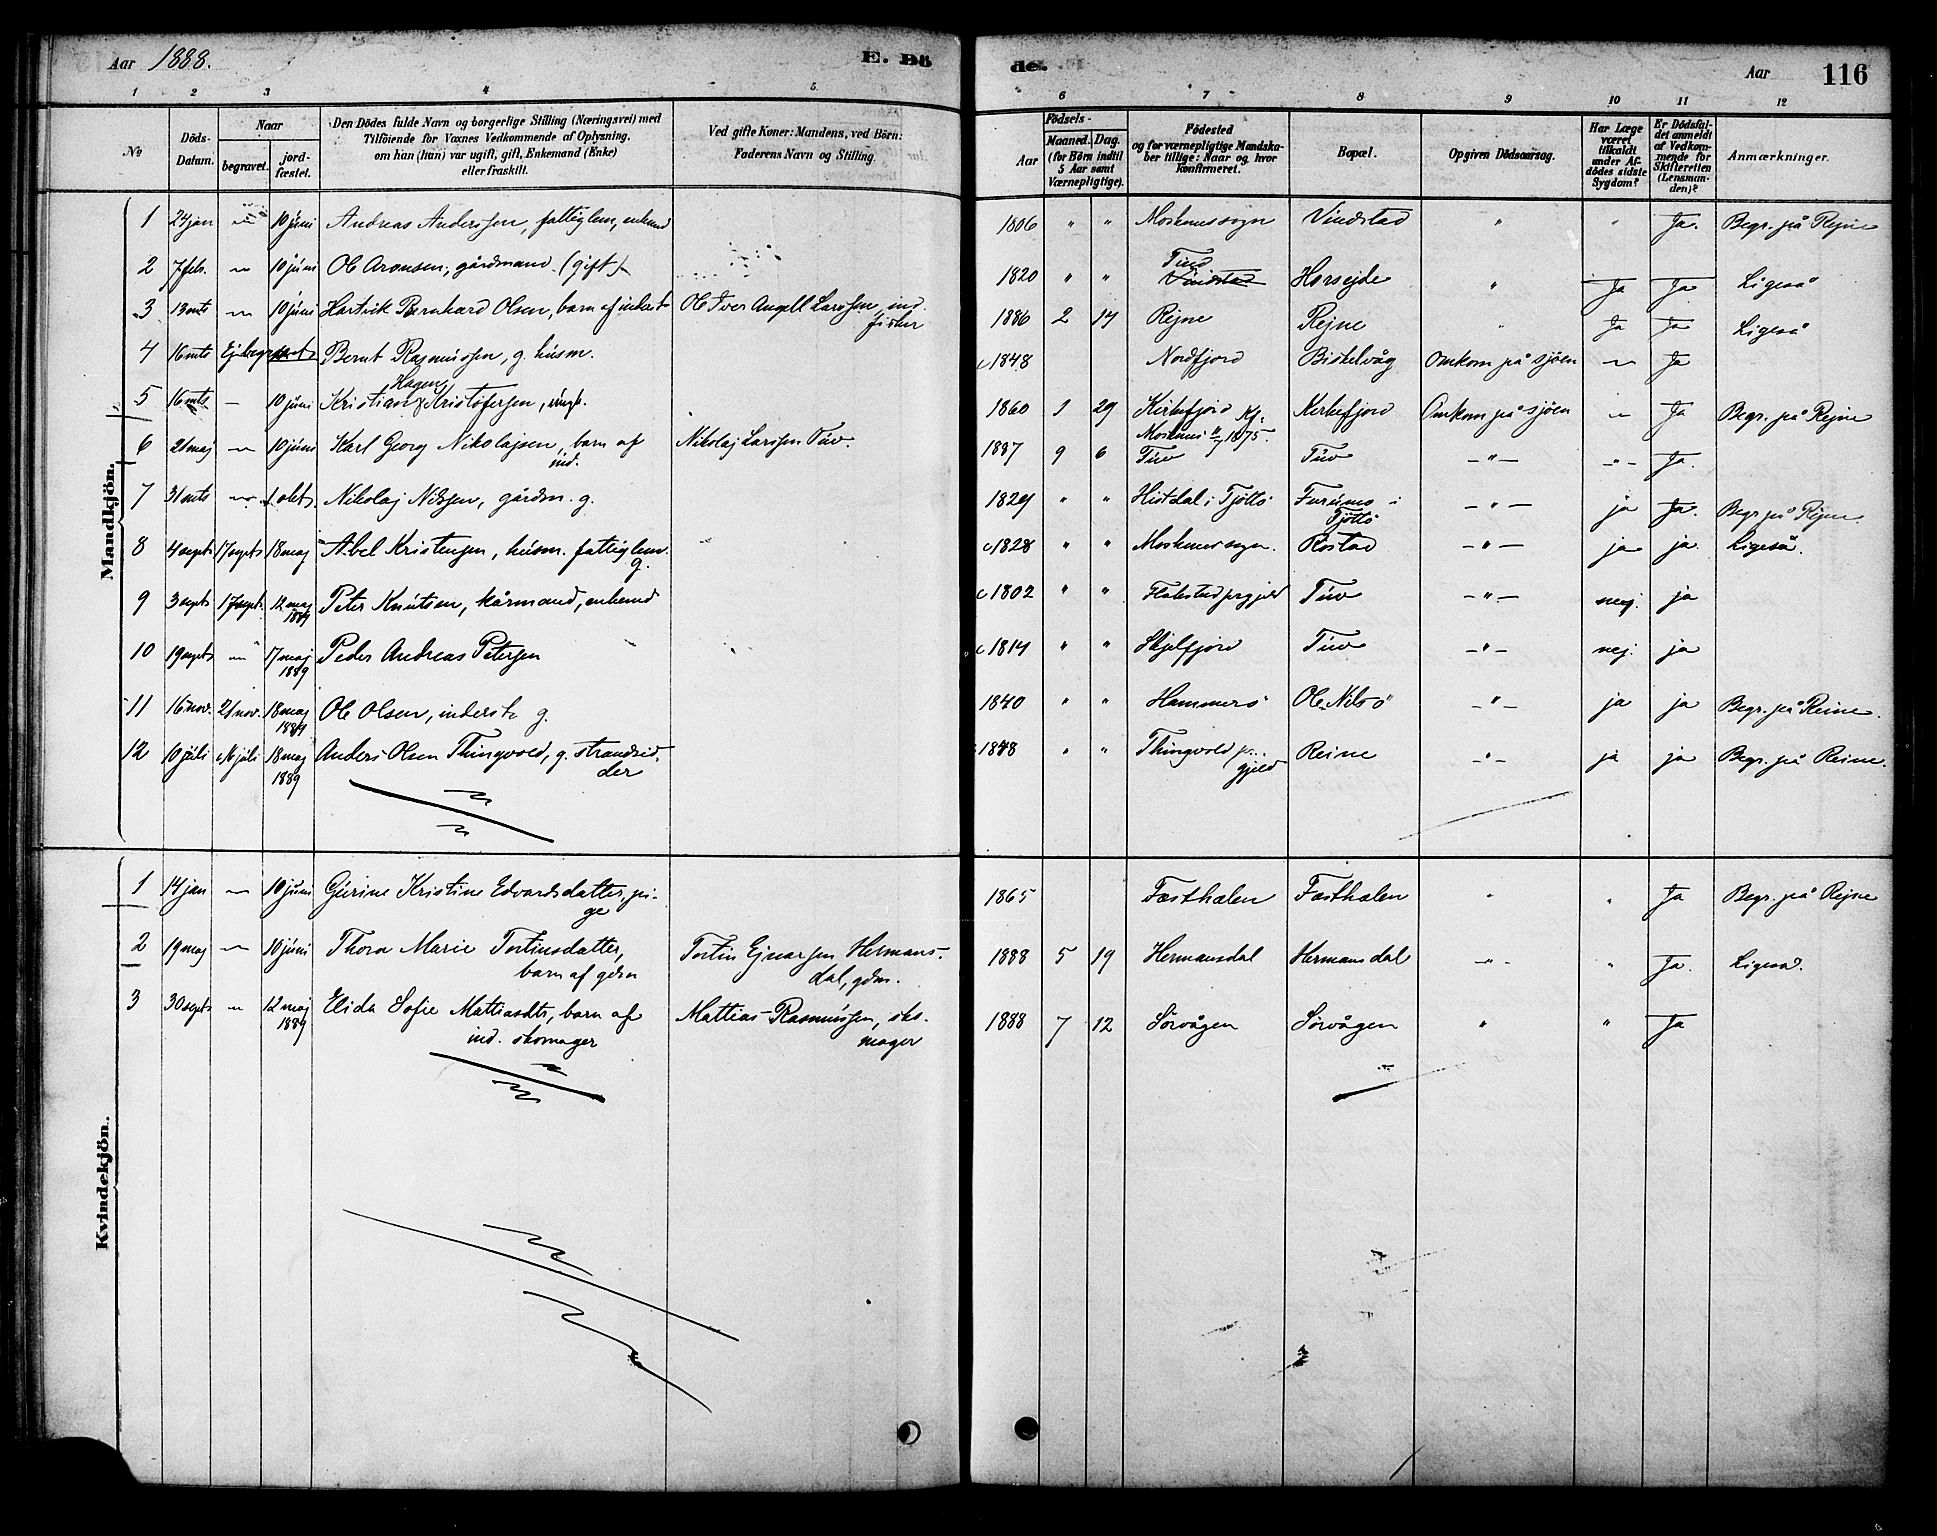 Aar 1888. E. Dö de. Aar 116
1 2 3 4 5 6 7 8 9 10 11 12
No
Döds-Datum.
Naar
begravet. jord-fæstet.
Den Dödes fulde Navn og borgerlige Stilling (Næringsvei) med
Tilföiende for Voxnes Vedkommende af Oplysning,
om han (hun) var ugift, gift, Enkemand (Enke)
eller fraskilt.
Ved gifte Koner: Mandens, ved Börn:
Faderens Navn og Stilling.
Födsels-
Aar
Maaned. Dag.
(for Börn indtil
5 Aar samt
Værnepligtige).
Födested
og for værnepligtige Mandska-
ber tillige: Naar og hvor
konfirmeret.
Bopæl.
Opgiven Dödsaarsag.
Har Læge
været
tilkaldt
under Af-
dödes sidste
Sygdom?
Er Dödsfal-
det anmeldt
af Vedkom-
mende for
Skifteretten
(Lensman-
den)?
Anmærkninger.
Mandkjön.
1 24 jan " 10 juni Andreas Anderssen, fattiglem, enkemd 1806 " " Moskenes sogn Vindstad " " Ja. Begr. på Rejne
2 7 feb. " 10 juni Ole Aronsen, gårdmand. (gift) 1820 " " Vindstad Tind Horsejde " Ja Ja Ligeså
3 13 mts " 10 juni Hartvik Bernhard Olsen, barn af inderst Ole Iver Angell Larssen, ind.
fisker 1886 2 14 Rejne Rejne " Ja Ja Ligeså
4 16 mts Ej begr Bernt Rasmussen, g. husm. c1848 Nordfjord Omkom på sjöen " Ja
5 16 mts - 10 juni Kristian Hagen Kristofersen, ungk. 1860 1 29 Kirkefjord Kj. Kirkefjord Omkom på sjöen " Ja Begr. på Rejne
Moskenes 11/7 1875.
6 21 maj " 10 juni Karl Georg Nikolajsen, barn af
ind. Nikolaj Larssen Tuv. 1887 9 6 Tuv Tuv -"- -"- Ja.
7 31 mts " 1 okt. Nikolaj Nilssen, gårdm. g. 1829 " " i Tjöttö Furumo i
Tjöttö -"- ja Ja. Begr. på Rejne.
8 4 sept 17 sept 18 maj Abel Kristensen, husm. fattiglem.
g. c1828 " " Moskenes sogn. Rostad -"- ja ja Ligeså.
9 3 sept 17 sept. 12 maj
1889 Peter Knutsen, kårmand, enkemd c1802 " " Flakstad prgjeld Tuv -"- nej. ja
10 19 sept " 17 maj
1889 Peder Andreas Petersen c1814 " " Skjelfjord Tuv -"- nej. ja
11 16 nov. 21 nov. 18 maj
1889 Ole Olsen, inderste g. 1840 " " Hammerö Ole Nilsö -"- ja ja Begr. på Reine.
12 10 juli 16 juli 18 maj
1889 Anders Olsen Thingvold, g. strandsid-
der 1848 " " Thingvold pr.
gjeld Reine -"- ja ja Begr. på Reine.
Kvindekjön.
1 14 jan " 10 juni Gurine Kristine Edvardsdatter, pi-
ge 1865 Fæsthælen Fæsthælen " " Ja Begr. på Rejne
2 19 maj " 10 juni Thora Marie Tortinsdatter,
barn af gdm Tortin Ejnarsen Hermans-
dal, gdm. 1888 5 19 Hermansdal Hermansdal -"- " Ja. Ligeså.
3 30 sept " 12 maj
1889 Elida Sofie Mattiasdtr, barn af
ind. skomager Mattias Rasmussen, sko-
mager 1888 7 12 Sörvågen Sörvågen " " Ja